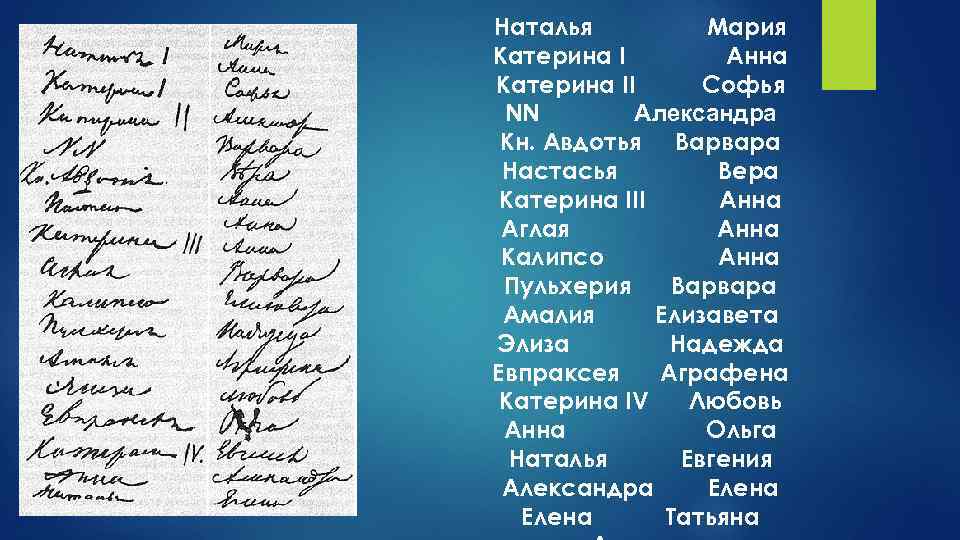 Наталья I Мария
Катерина I Анна
Катерина II Софья
NN Александр
Кн. Авдотия Варвара
Настасья Вера
Катерина III Анна
Аглая Анна
Калипсо Анна
Пульхерия Варвара
Амалия Елизавета
Элиза Надежда
Евпраксея Аграфена
Катерина IV. Любовь
Анна Ольга
Наталья Евгения
Александра
Елена
Наталья Мария
Катерина I Анна
Катерина II Софья
NN Александра
Кн. Авдотья Варвара
Настасья Вера
Катерина III Анна
Аглая Анна
Калипсо Анна
Пульхерия Варвара
Амалия Елизавета
Элиза Надежда
Евпраксея Аграфена
Катерина IV Любовь
Анна Ольга
Наталья Евгения
Александра Елена
Елена Татьяна